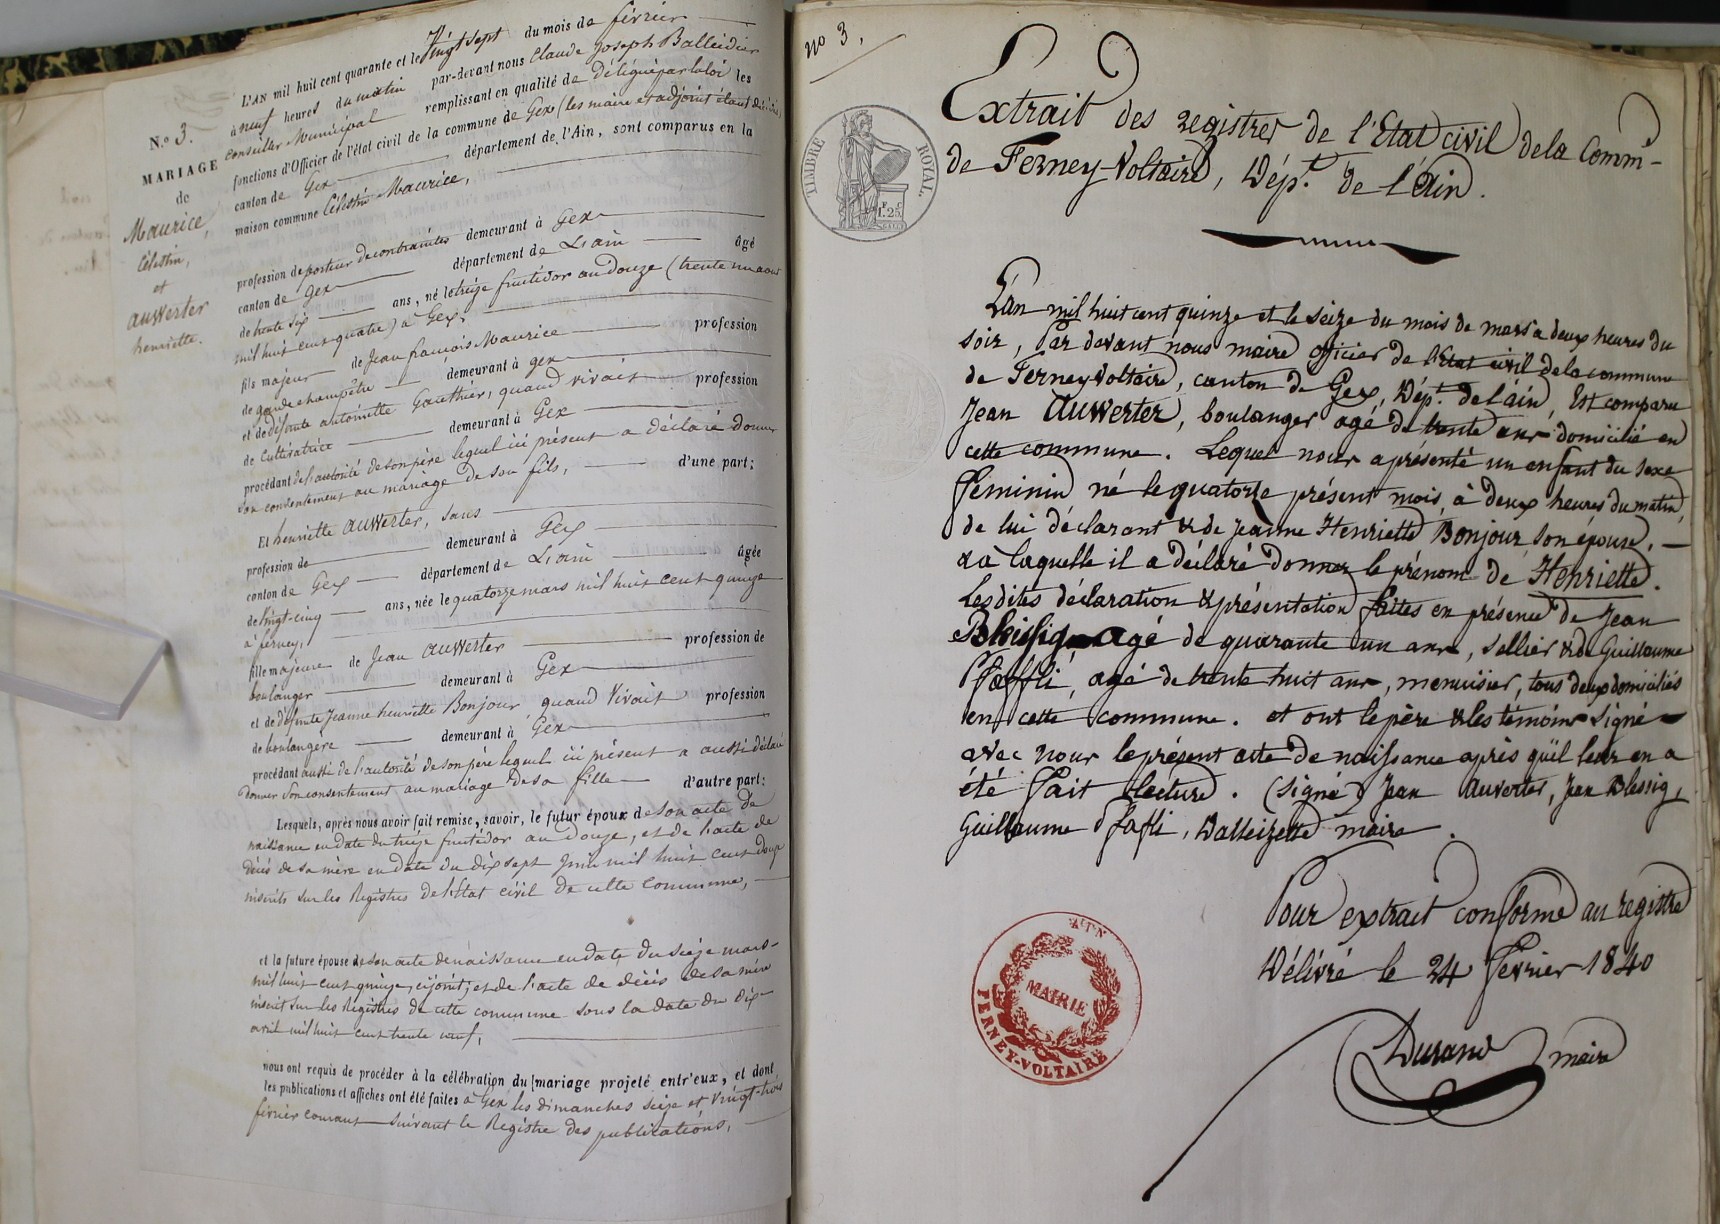 L'AN mil huit cent quarante et le Vingt sept du mois de février
à neuf heures du matin par-devant nous Claude Joseph Balleidier
conseiller Municipal remplissant en qualité de Délégué par la loi les
fonctions d'Officier de l'état civil de la commune de Gex (les maire et adjoint étant
canton de Gex département de l'Ain, sont comparus en la
maison commune Célestin Maurice,
N.o 3.
MARIAGE
de
Maurice,
Célestin,
et
auwerter
henriette.
profession de porteur de contraintes demeurant à Gex
canton de gex département de L'ain âgé
de trente six ans, né le treize fructidor an Douze (trente un aout
mil huit cent quatre) à Gex,
fils majeur de Jean francois Maurice profession
de garde champêtre demeurant à gex
et de défunte antoinette Gauthier, quand vivait profession
de Cultivatrice demeurant à Gex
procédant de l'autorité de son père lequel ici présent a déclaré donner
son consentement au mariage de son fils, d'une part;
Et henriette auwerter, sans
profession de demeurant à Gex
canton de Gex département de L'ain âgée
de vingt-cinq ans, née le quatorze mars mil huit cent quinze
à ferney,
fille majeure de Jean auwerter profession de
boulanger demeurant à Gex
et de défunte Jeanne henriette Bonjour quand Vivait profession
de boulangère demeurant à Gex
procédant aussi de l'autorité de son père lequel ici présent a aussi déclaré
donner son consentement au mariage de sa fille d'autre part;
Lesquels, après nous avoir fait remise, savoir, le futur époux de son acte de
naissance en date du treize fructidor an Douze, et de l'acte de
décès de sa mère en date du dix sept juin mil huit cent douze
inscrits sur les Registres de l'Etat civil de cette commune,
et la future épouse de son acte de naissance en date du seize mars
mil huit cent quinze, ci joint; et de l'acte de décès de sa mère
inscrit sur les Registres de cette commune sous la date du dix
avril mil huit cent trente neuf,
nous ont requis de procéder à la célébration du mariage projeté entr'eux, et dont
les publications et affiches ont été faites à Gex les dimanches seize et vingt-trois
février courant suivant le Registre des publications,
no 3,
TIMBRE ROYAL
F. C.
1.25
Extrait des registres de l'Etat civil de la Comm-
de Ferney-Voltaire, Dép.t de l'Ain.
L'an mil huit cent quinze et le seize du mois de mars à deux heures du
soir, Par devant nous maire officier de l'état civil de la commune
de Ferney Voltaire, canton de Gex, Dép.t de l'ain, Est comparu
Jean Auwerter, boulanger agé de trente ans domicilié en
cette commune. Lequel nous a présenté un enfant du sexe
féminin né le quatorze présent mois, à deux heures du matin,
de lui déclarant & de Jeanne Henriette Bonjour son épouse,
& à laquelle il a déclaré donner le prénom de Henriette.
Lesdites déclaration & présentation faites en présence de Jean
Blessig agé de quarante un ans, sellier & de Guillaume
Pfoeffli, agé de trente huit ans, menuisier, tous deux domiciliés
en cette commune. et ont le père & les témoins signé
avec nous le présent acte de naissance après qu'il leur en a
été fait lecture. (signé) Jean Auverter, Jean Blessig,
Guillaume Pfafli, Walleizette maire.
Pour extrait conforme au registre
Délivré le 24 fevrier 1840
Durand maire
MAIRIE
FERNEY-VOLTAIRE